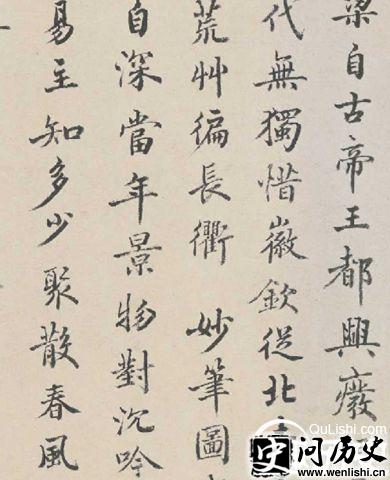 梁自古帝王都興廢
代無獨惜徽欽從北
荒艸徧長衢 妙筆圖
自深當年景物對沉吟
易主知多少聚散春風
QuLishi.com
问历史
www.wenlishi.cn